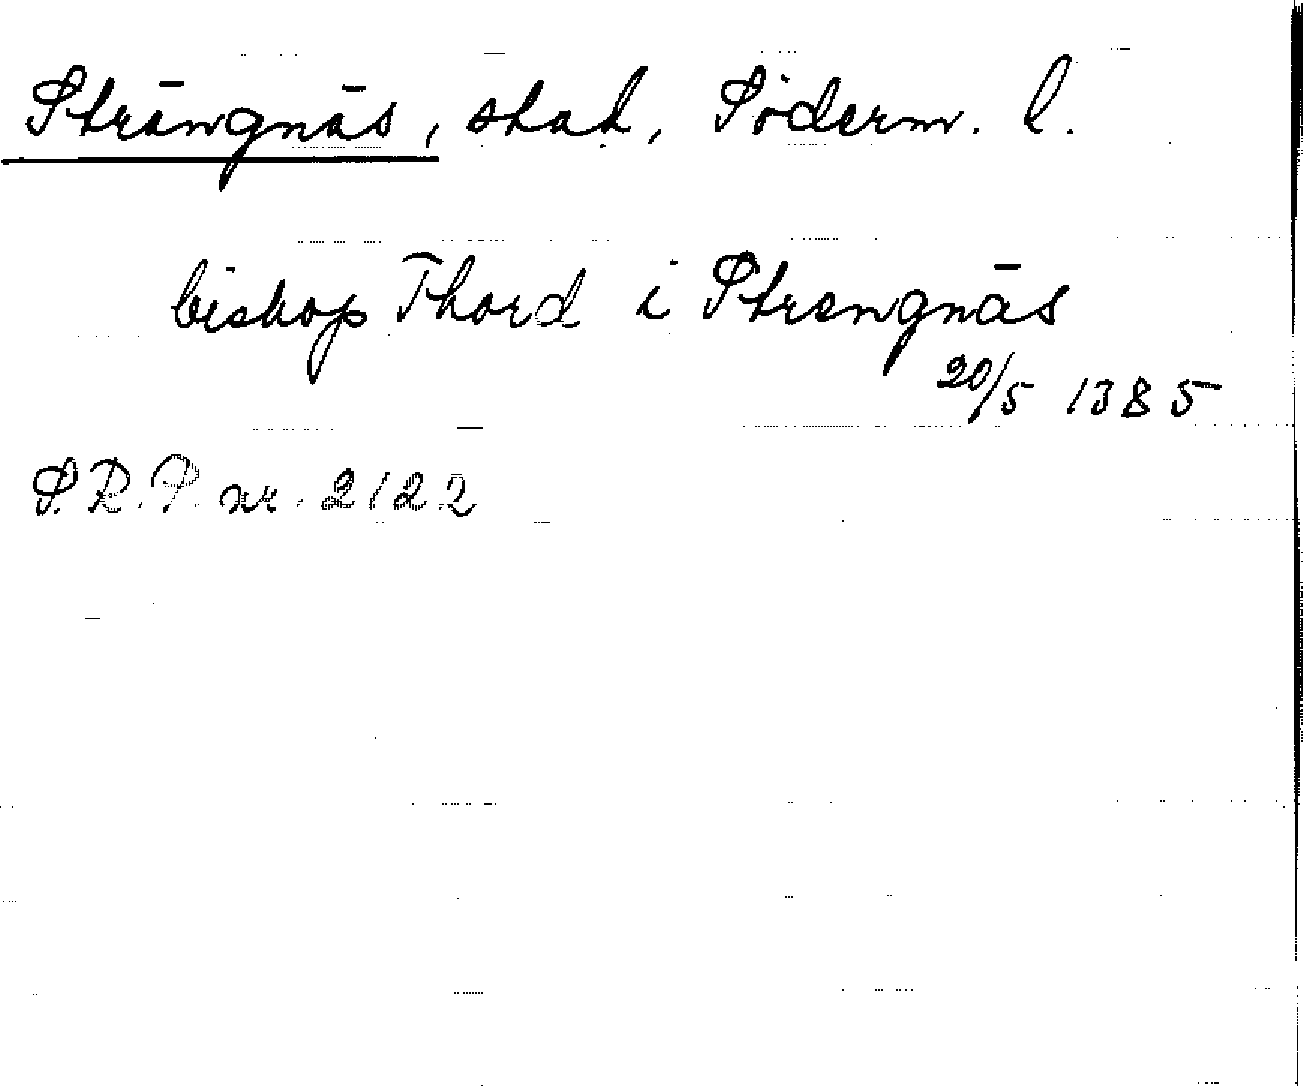 Strängnäs, stad, Söderm. l.
biskop Thord i Strengnäs
20/5 1385
S.R.P. nr. 2122